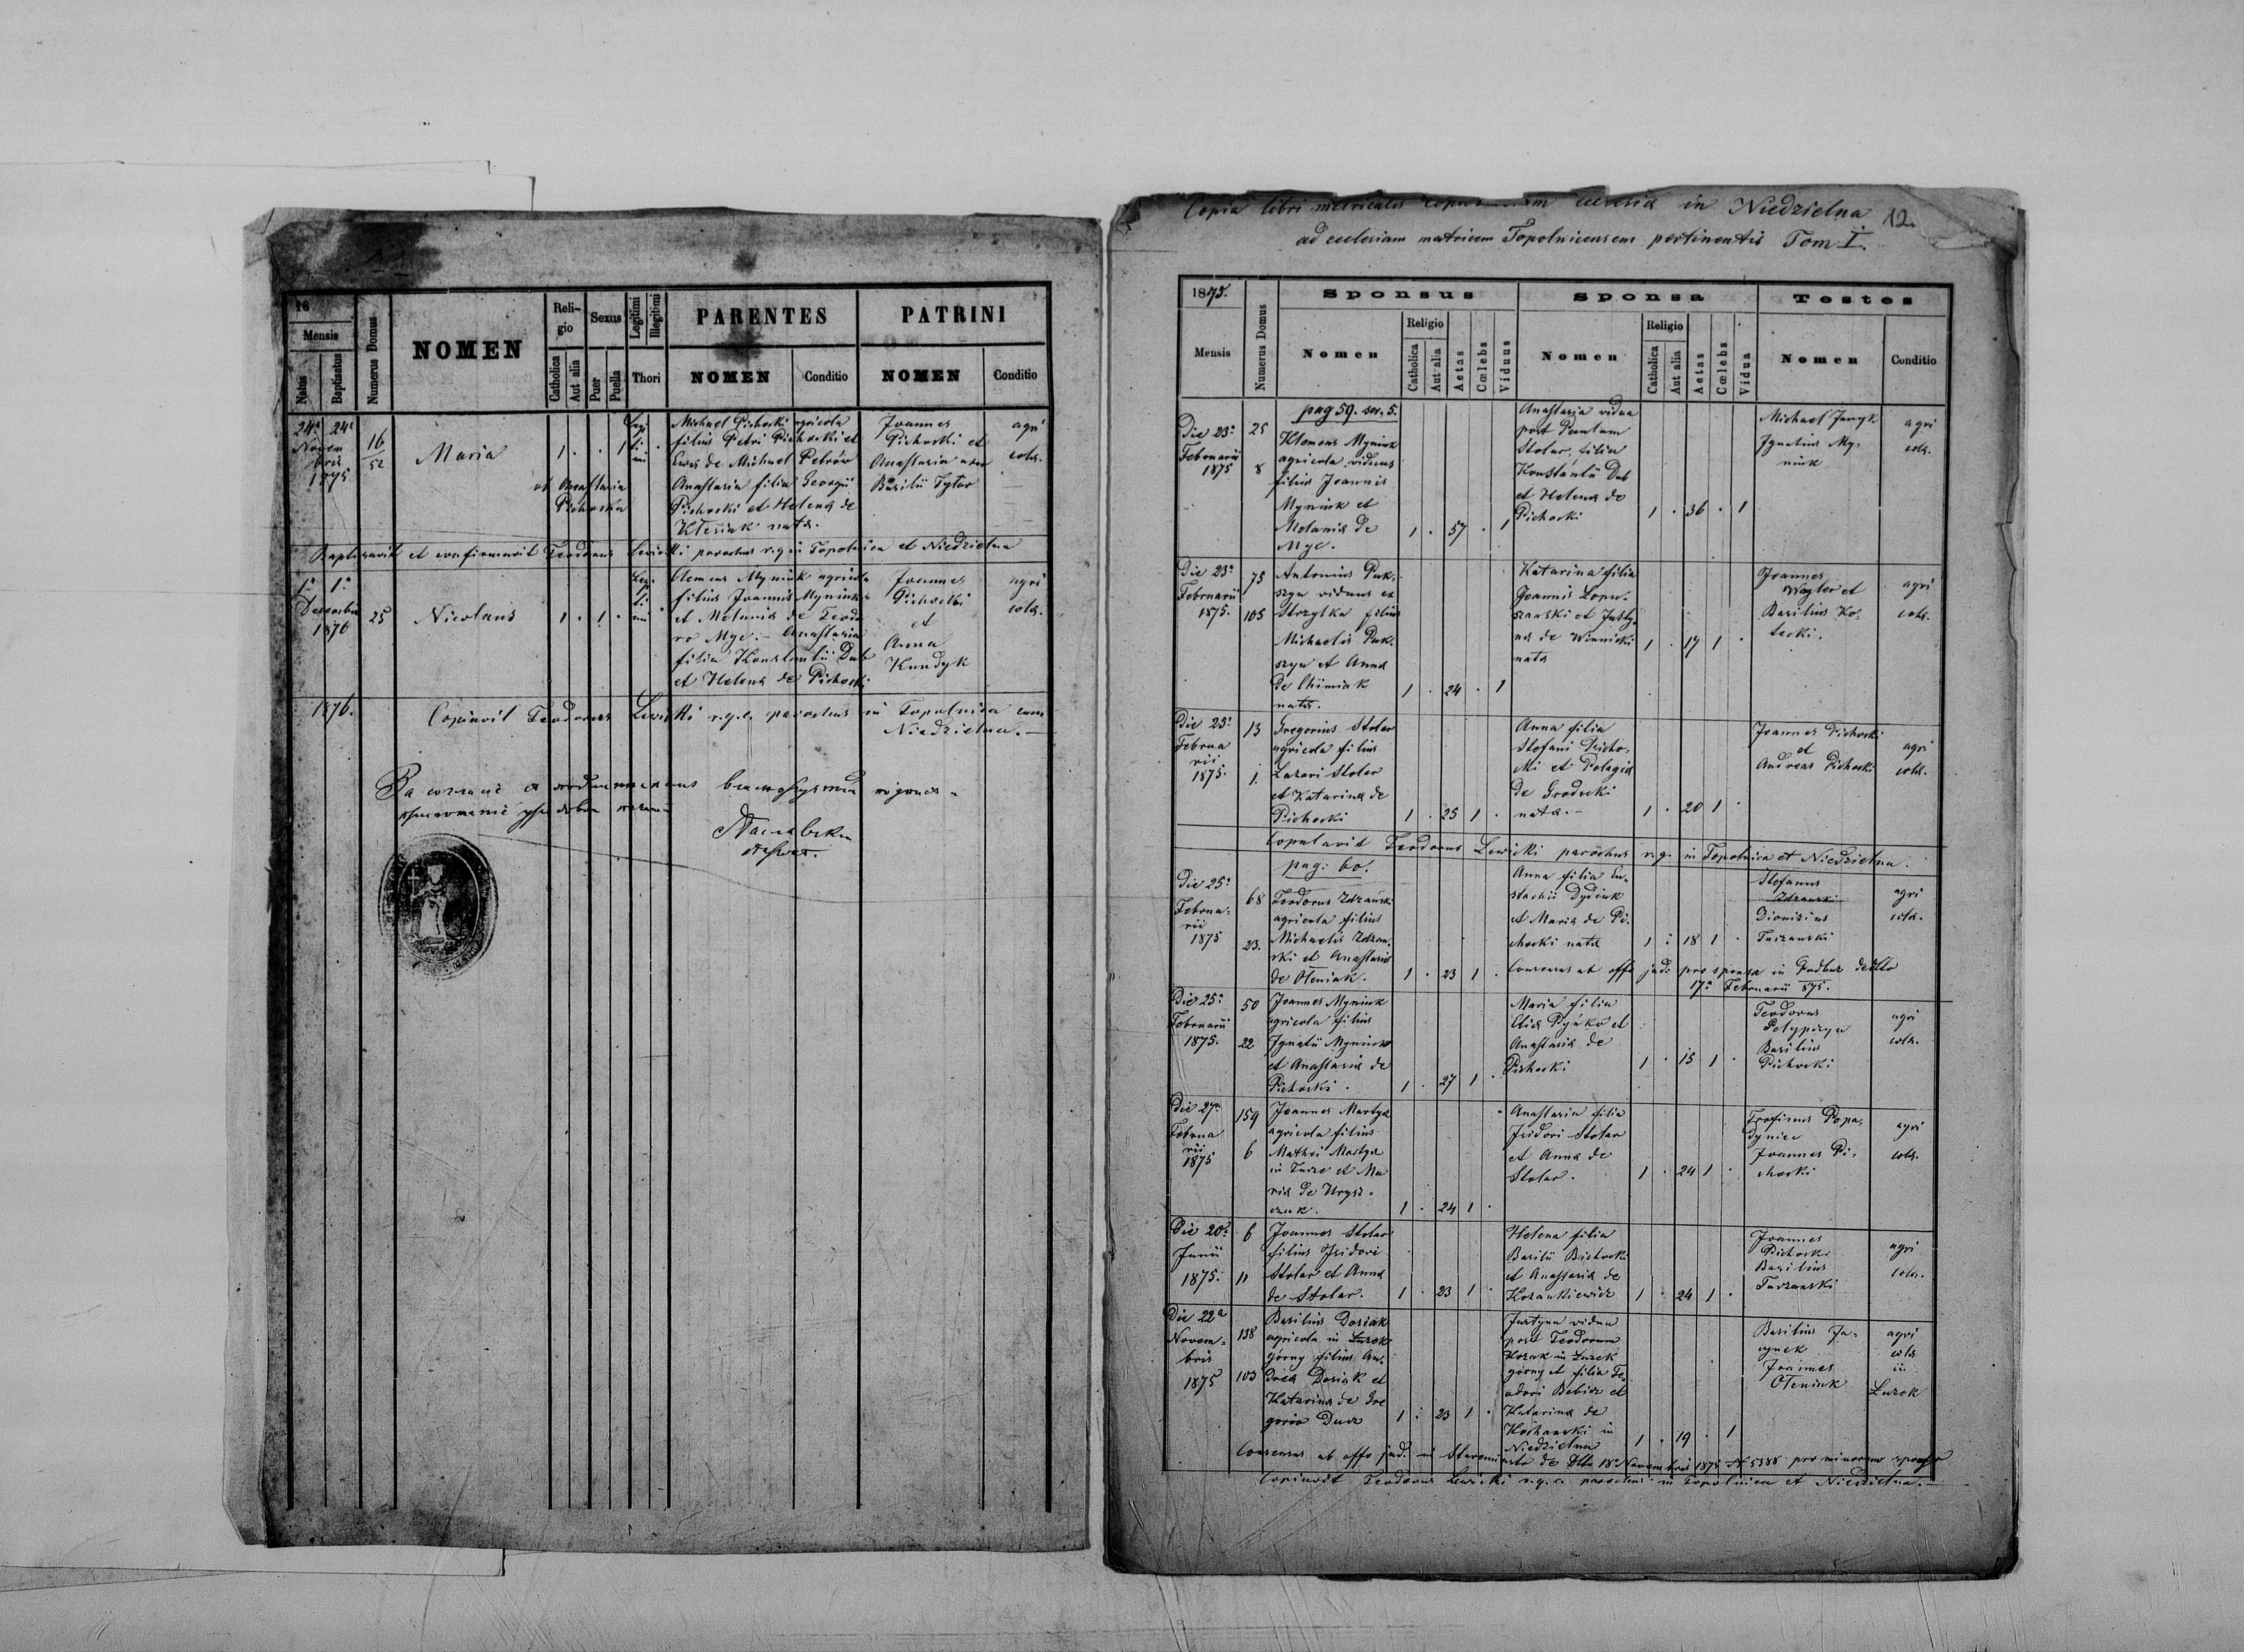 18
Mensis
Natus
Baptisatus
Numerus Domus
NOMEN
Reli-
gio
Catholica
Aut alia
Sexus
Puer
Puella
Legitimi
Illegitimi
Thori
PARENTES
NOMEN
Conditio
PATRINI
NOMEN
Conditio
24a 24a
Novem
bris
1875
16
52
Maria
1 . . 1
Legi
ti
mi
et Anastasia
Pichocka
Michael Pichocki agricola
filius Petri Pichocki et
Eva de Michael Petrów
Anastasia filia Georgii
Pichocki et Helena de
Klesiak nata.
Joannes
Pichocki et
Anastasia uxor
Basilii Tytar
agri
colae.
Baptisavit et confirmavit Teodorus Lewicki parochus r.g. in Topolnica et Niedzielna
1a 1a
Decembris
1876
25
Nicolaus
1 . 1 .
Legi
ti
mi
Clemens Myniuk agricola
filius Joannis Myniuk
et Melania de Teodo
ro Myc. - Anastasia
filia Konstantii Dub
et Helena de Pichocki
Joannes
Pichocki
et
Anna
Kundyk
agri
colae.
1876.
Copiavit Teodorus Lewicki r.g.c. parochus in Topolnica cum
Niedzielna.
12.
Copia libri metricalis ecclesia in Niedzielna
ad ecclesiam matricem Topolnicensem pertinentis Tom I.
1875.
Mensis
Numerus Domus
Sponsus
Nomen
Religio
Catholica
Aut alia
Aetas
Cœlebs
Viduus
Sponsa
Nomen
Religio
Catholica
Aut alia
Aetas
Cœlebs
Vidua
Testes
Nomen
Conditio
pag 59. ser. 5.
Die 23a
Februarii
1875
25
8
Klemens Myniuk
agricola viduus
filius Joannis
Myniuk et
Melania de
Myc.
1 . 57 . 1
Anastasia vidua
post
Stolar, filia
Konstantii Dub
et Helena de
Pichocki
1 . 36 . 1
Michael
Ignatius My-
niuk
agri
colae.
Die 23a
Februarii
1875.
75
105
Antonius Puk-
szyn viduus ex
Strzylka filius
Michaelis Puk-
szyn et Anna
de Chimiak
nata.
1 . 24 . 1
Katarina filia
Joannis Lopu-
szanski et Justy-
na de Winnicki
nata
1 . 17 1 .
Joannes
Wagler et
Basilius Ko-
tecki.
agri
colae.
Die 25a
Februa
rii
1875.
13
1.
Gregorius Stolar
agricola filius
Lazari Stolar
et Katarina de
Pichocki
1 . 25 1 .
Anna filia
Stefani Picho-
cki et Pelagia
de Grodecki
nata.
1 . 20 1 .
Joannes Pichocki
et
Andreas Pichocki
agri
colae.
Copulavit Teodorus Lewicki parochus r.g. in Topolnica et Niedzielna.
pag: 60.
Die 25a
Februa-
rii
1875
68
23.
Teodorus Zdzanski
agricola filius
Michaelis Zdzan-
ski et Anastasia
de Oleniak.
1 . 23 1 .
Anna filia Eu-
stachii Dydiuk
et Maria de Pi-
chocki nata
1 . 18 1 .
Stefanus
Zdzanski
Dionizius
Turzanski
agri
colae.
Consensus ab offo jud: pro sponsa in Podbuz ddto
17a Februarii 875.
Die 25a
Februarii
1875.
50
22
Joannes Myniuk
agricola filius
Ignatii Myniuk
et Anastasia de
Pichocki.
1 . 27 1 .
Maria filia
Elia Pyńko et
Anastasia de
Pichocki
1 . 15 1 .
Teodorus
Petypszyn
Basilius
Pichocki
agri
colae.
Die 27a
Februa
rii
1875
159
6
Joannes Martyn
agricola filius
Mathei Martyn
in Turze et Ma
ria de Urysz-
czuk.
1 . 24 1 .
Anastasia filia
Isidori Stolar
et Anna de
Stolar.
1 . 24 1 .
Trofimus Popa-
dyniec
Joannes Pi-
chocki
agri
colae.
Die 20a
Junii
1875.
6
11
Joannes Stolar
filius Isidori
Stolar et Anna
de Stolar.
1 . 23 1 .
Helena filia
Basilii Pichocki
et Anastasia de
Kozankiewicz
1 . 24 1 .
Joannes
Pichocki
Basilius
Turzanski
agri
colae.
Die 22a
Novem-
bris
1875
138
103
Basilius Dosiak
agricola in Luzok
górny filius An-
drea Dosiak et
Katarina de Gre
gorio Ducz
1 . 23 1 .
Justyna vidua
post Teodorum
Kozak in Luzek
górny et filia Te-
odori Babicz et
Katarina de
Kochanski in
Niedzielna
1 . 19 . 1
Basilius Ja-
cynek
Joannes
Oleniuk
agri
colae
in
Luzok
Consensus ab offo jud. in Staremiasto de dtto 18a Novembris 1875 N 5388 pro minorenn sponso
Copiavit Teodorus Lewicki r.g.c. parochus in Topolnica et Niedzielna.